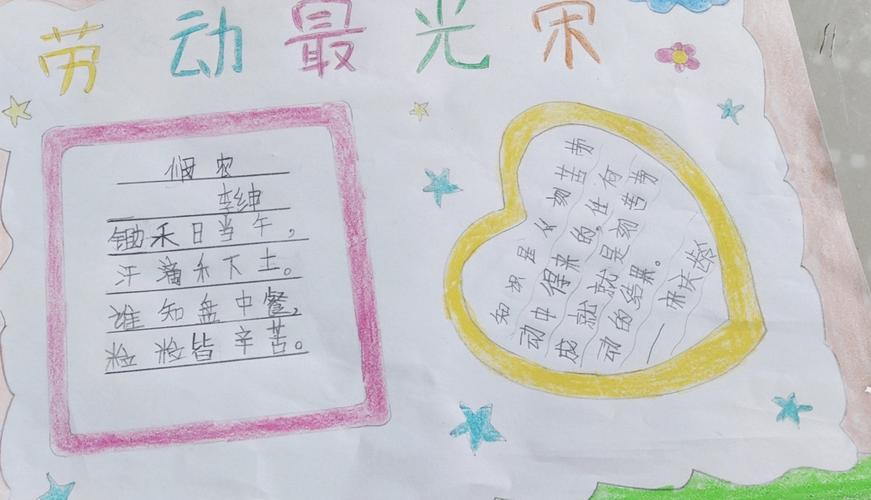 劳动最光荣
悯农
李绅
锄禾日当午，
汗滴禾下土。
谁知盘中餐，
粒粒皆辛苦。
知识是从刻苦劳
动中得来的，任何
成就就是刻苦劳
动的结果。
—宋庆龄